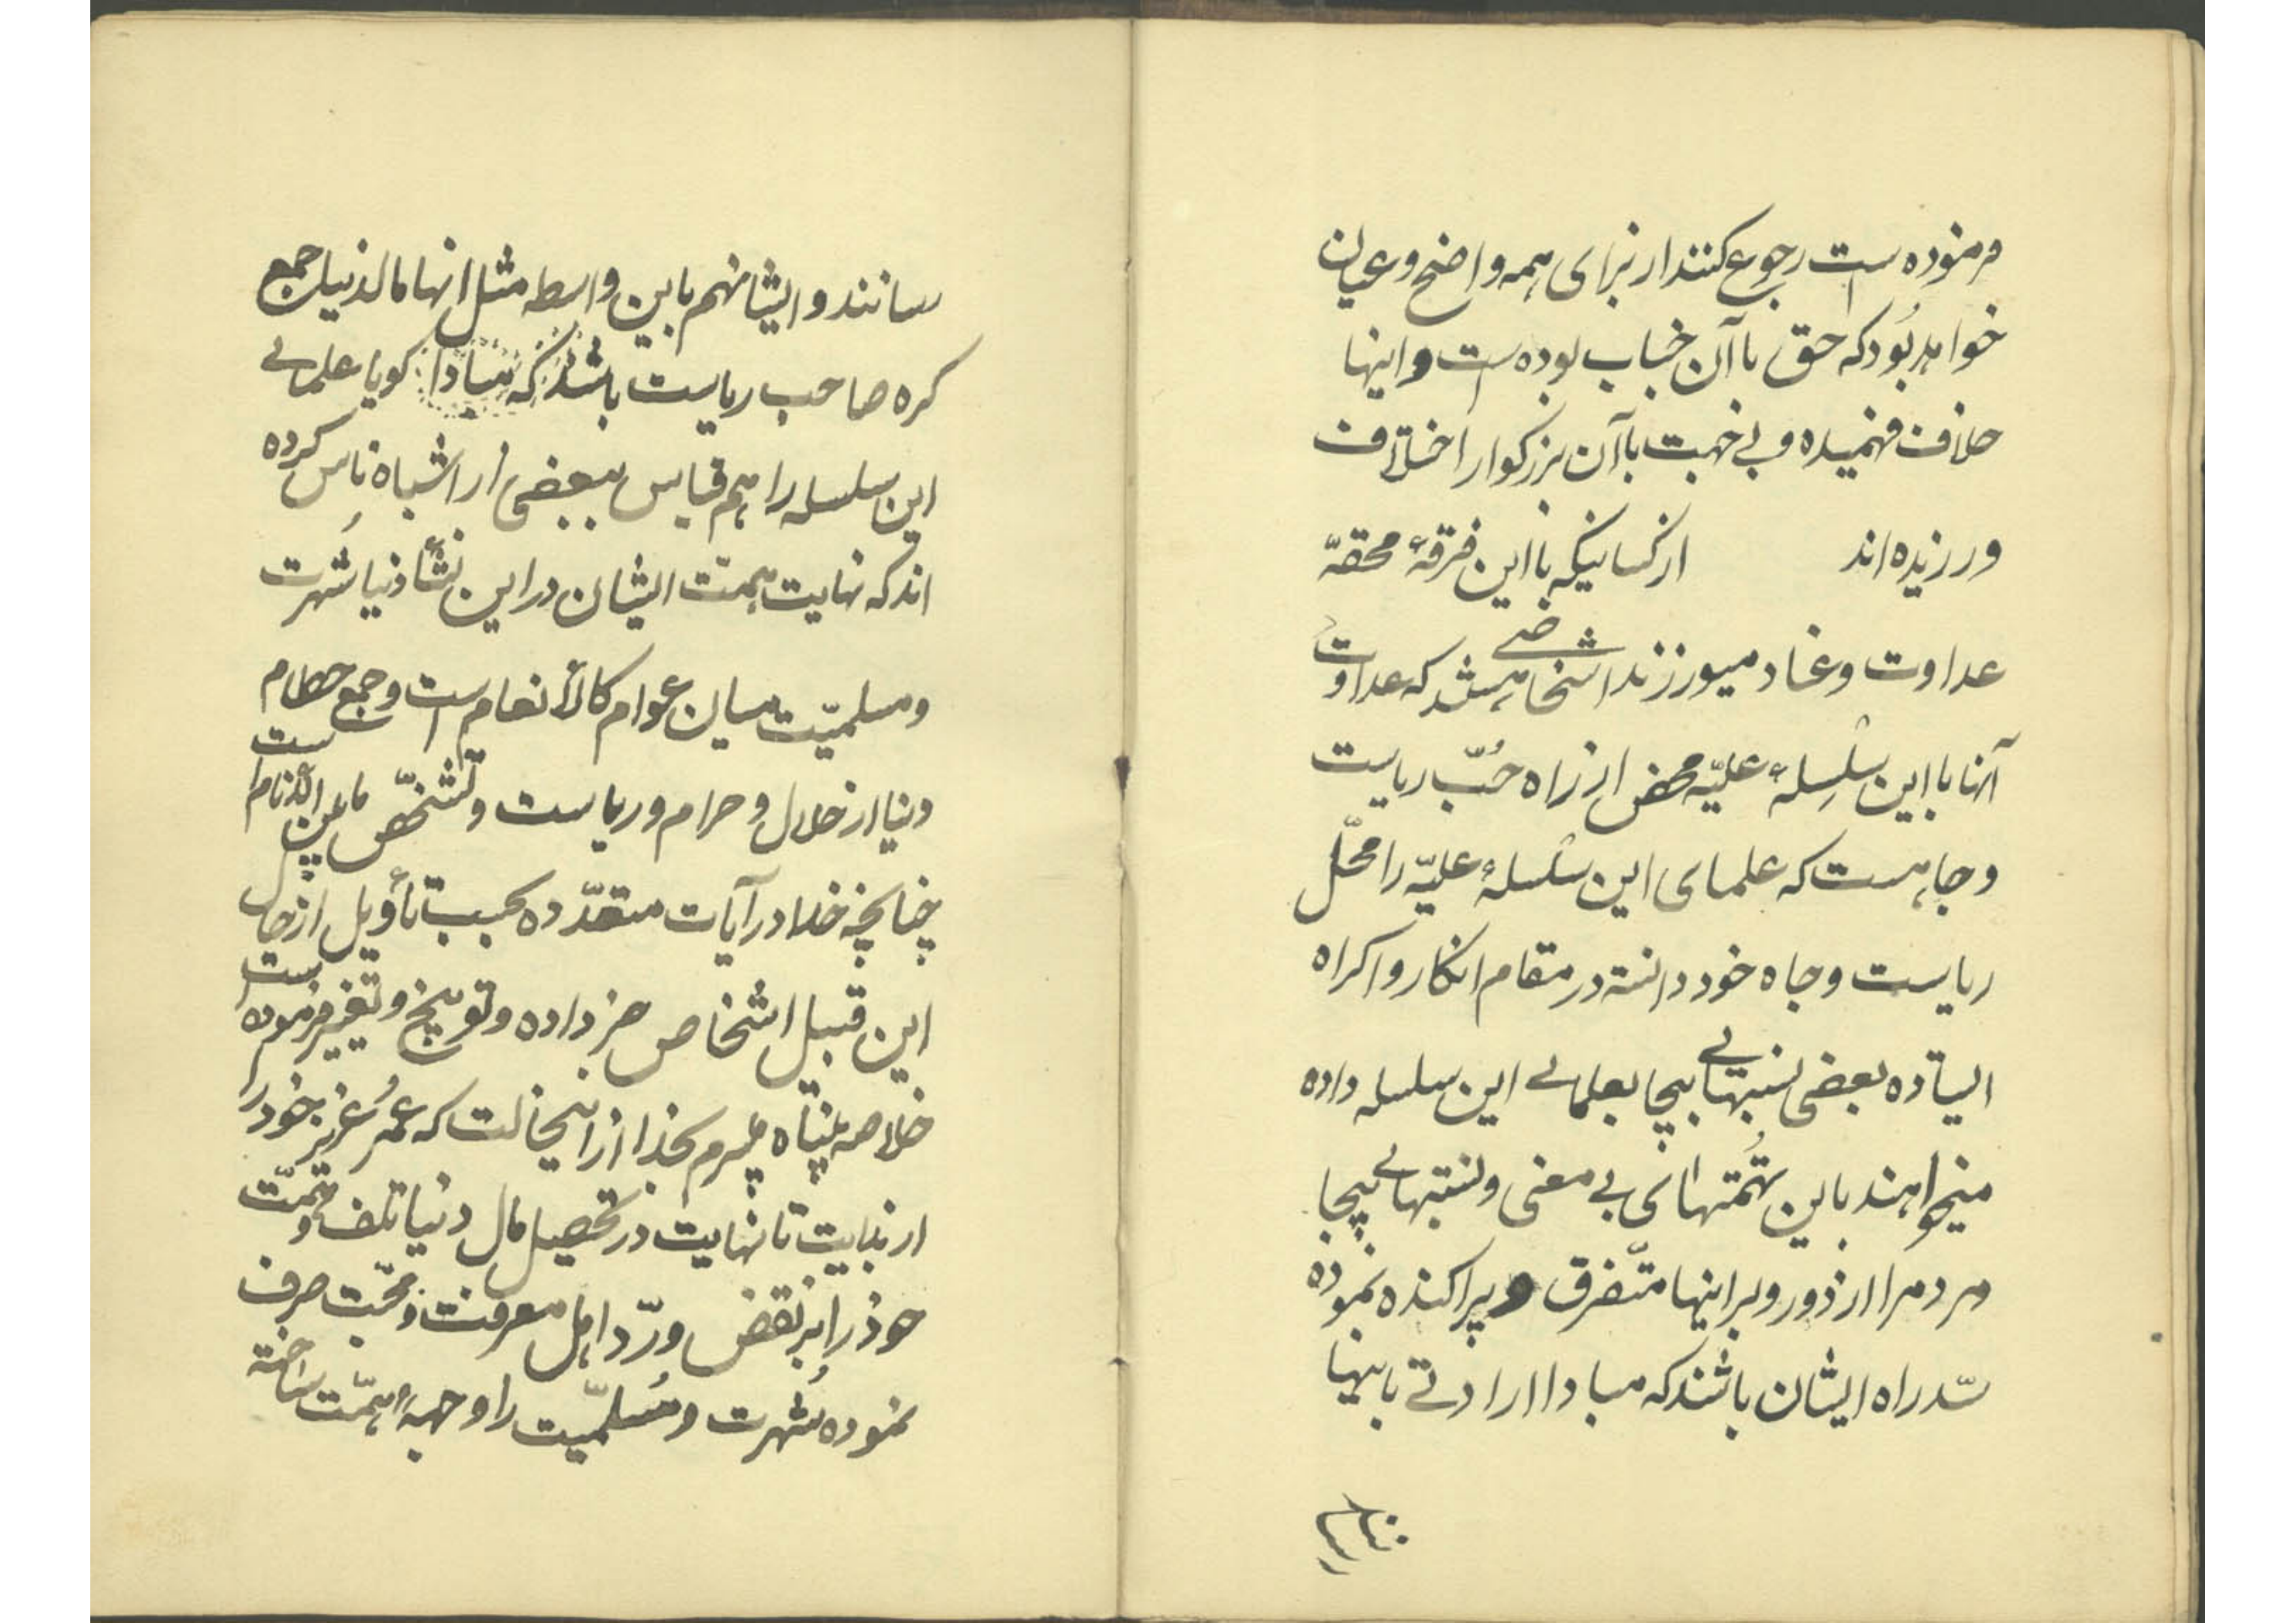 فرموده است رجوع کنند از برای همه واضح و عیان
خواهد بود که حق با آن جناب بوده است و اینها
خلاف فهمیده و بی جهت با آن بزرگوار اختلاف
ورزیده اند از کسانیکه با این فرقهٔ محقّه
عداوت و عناد میورزند اشخاصی هستند که عداوت
آنها با این سلسلهٔ علیّه محض از راه حُبّ ریاست
و جاه است که علمای این سلسلهٔ علیّه را مخلّ
ریاست و جاه خود دانسته در مقام انکار و اکراه
ایستاده بعضی نسبتهای بیجا بعلمای این سلسله داده
میخواهند باین تُهمتهای بی معنی و نسبتهای بیجا
مردم را از دور و بر اینها متفرّق و پراکنده نموده
سدّ راه ایشان باشند که مبادا ارادتی باینها

سانند و ایشانهم باین واسطه مثل آنها مال دنیا جمع
کره صاحب ریاست باشند که مبادا گویا علمای
این سلسله را هم قیاس ببعضی از اشباه ناس کرده
اند که نهایت همّت ایشان در این نشأ دنیا شهرت
و مسلمیّت میان عوام کالأنعام است و جمع حطام
دنیا از حلال و حرام و ریاست و تشخّص مابین الأنام است
چنانچه خدا در آیات متعدّده بحسب تأویل از حال
این قبیل اشخاص خبر داده و توبیخ و تعییر فرموده است
خلاصه پناه میبرم بخدا از اینحالت که عُمر عزیز خود را
از بدایت تا نهایت در تحصیل مال دنیا تلف و همّت
خود را بر نقض و ردّ اهل معرفت و محبّت صرف
نموده شُهرت و مُسلمیّت را وجههٔ همّت ساخته